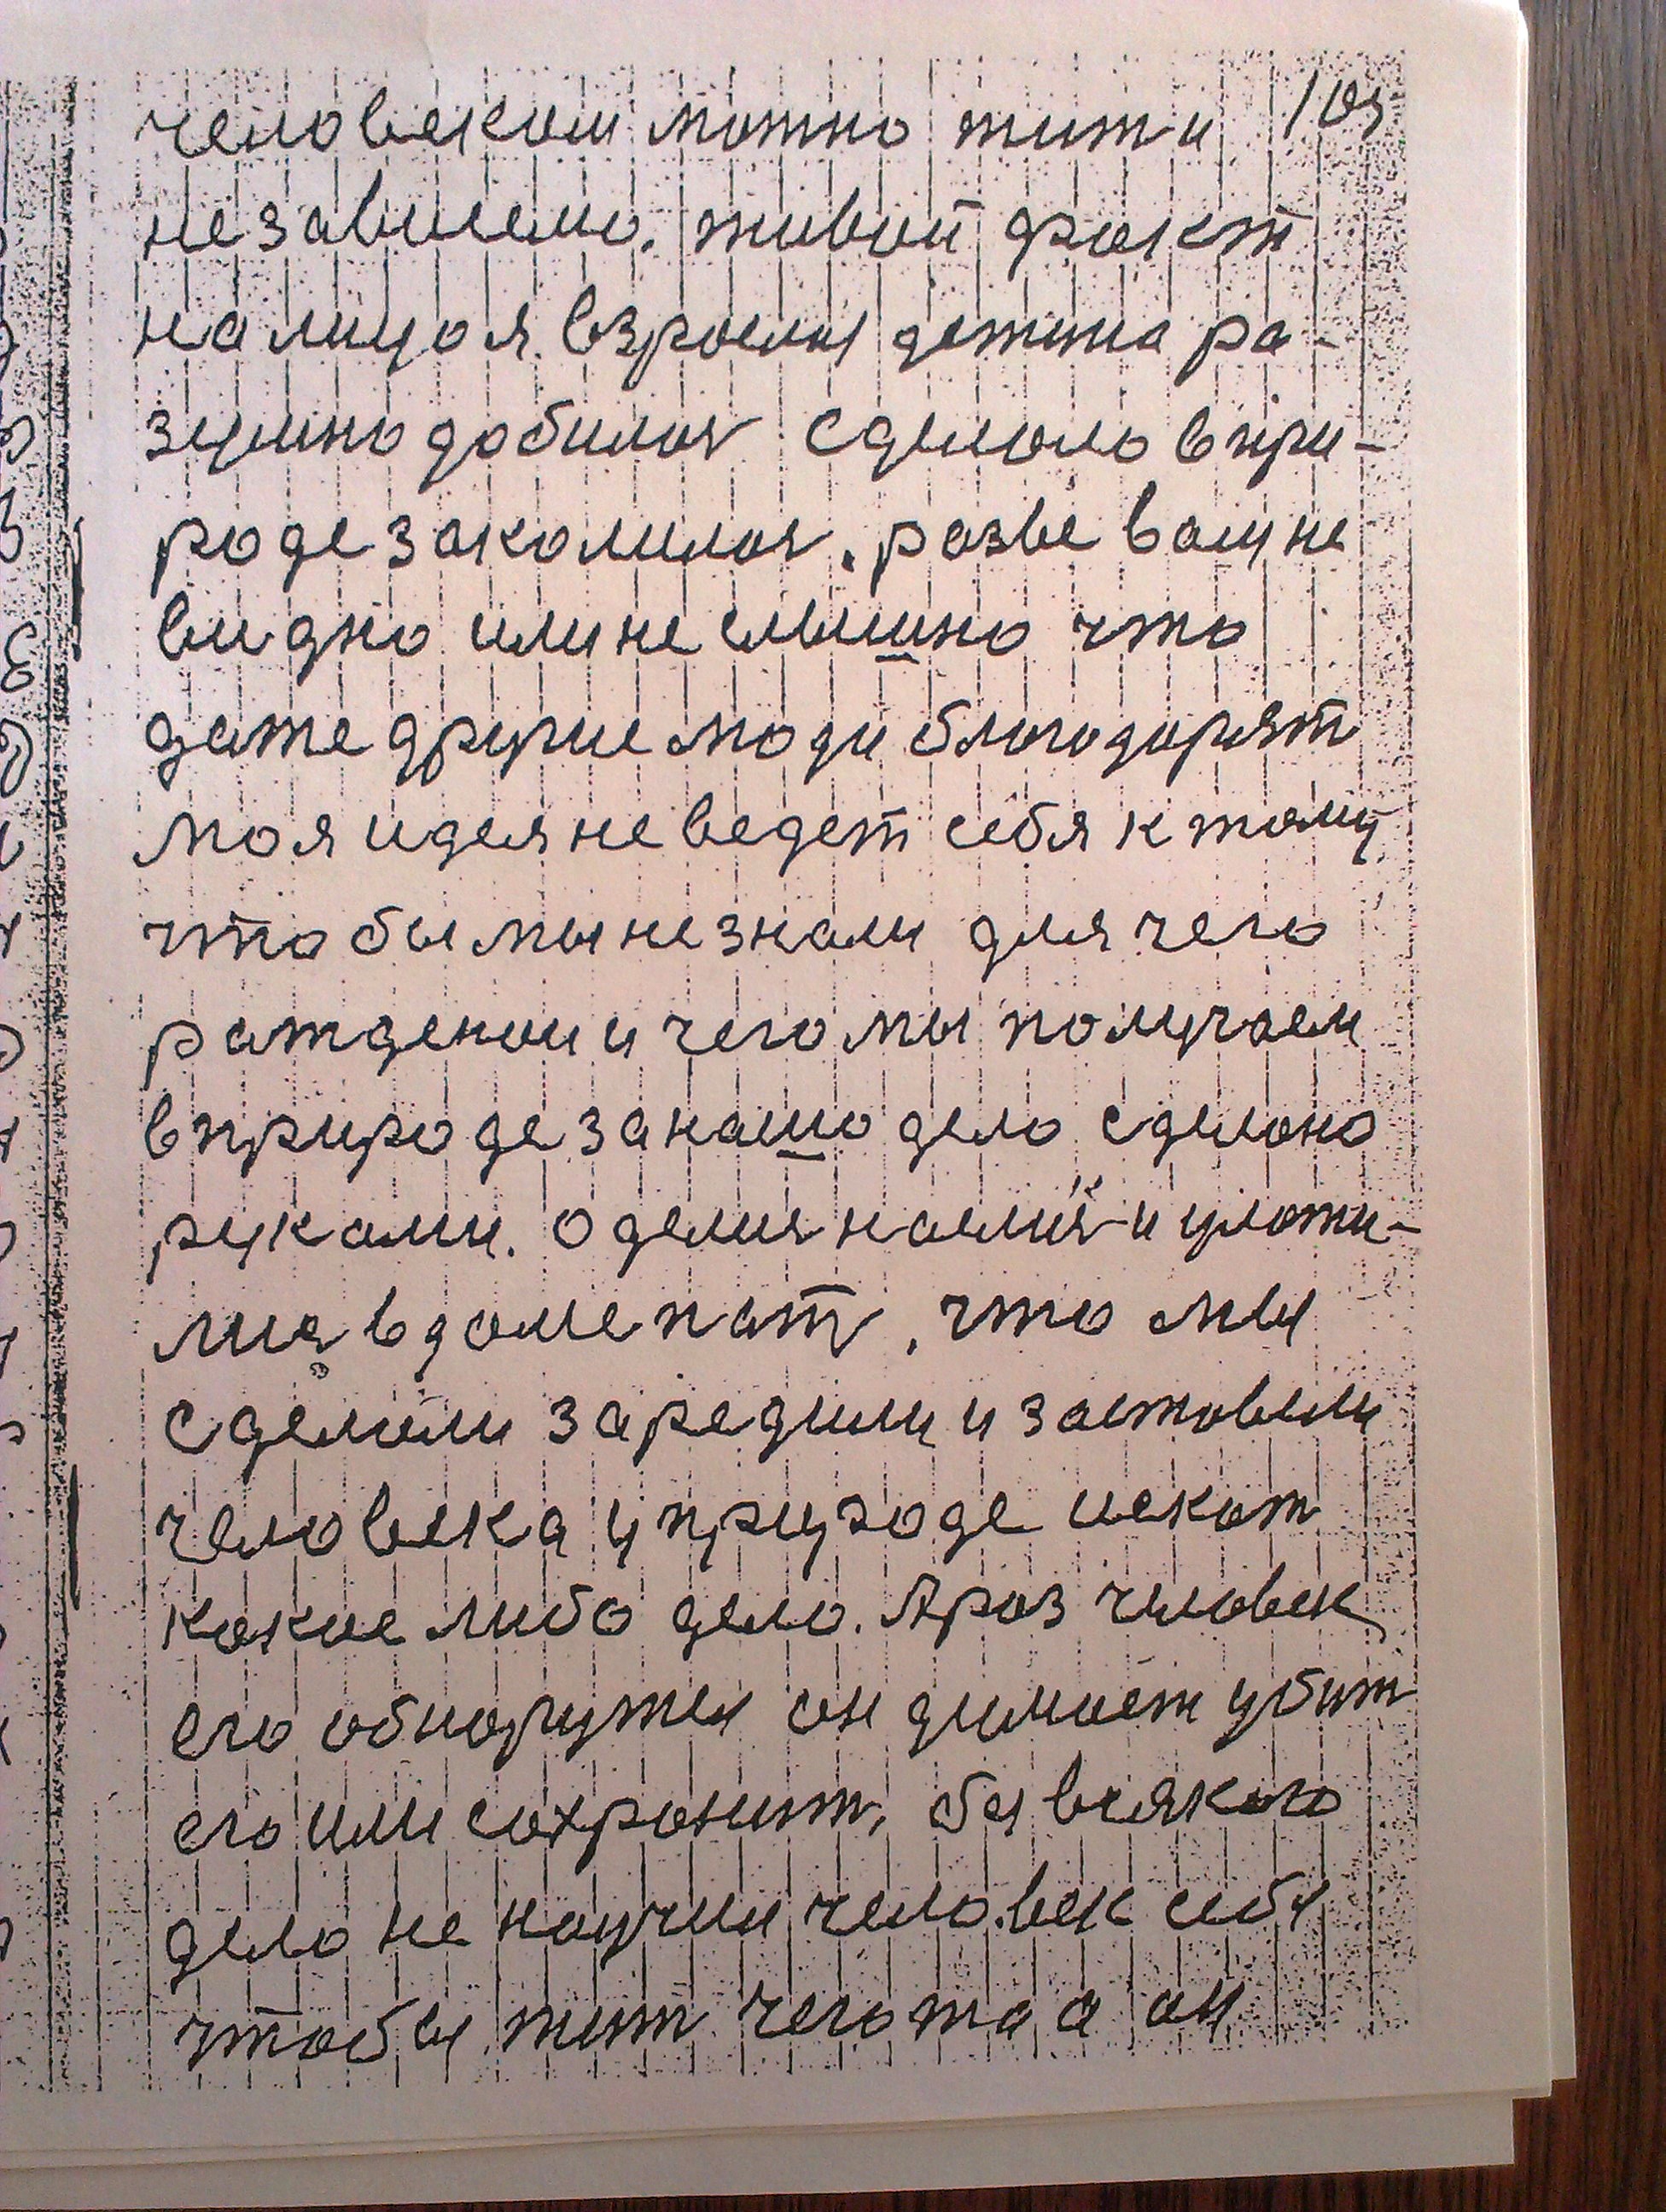 человеком можно жит и 103
не зависемо. живой факт
на лицо я. взрослы детина ра-
зумно добился сделало в при-
роде закомился. разве вам не
видно или не слышно что
даже другие люди благодарят
моя идея не ведет себя к тому
что бы мы не знали для чего
ражденои и чего мы получаем
в природе за нашо дело сделоно
руками. Оделия наелия и уложи-
лия в доме пат, что мы
сделали заредили и заставили
человека у природе искат
какие либо дело. А раз человек
его обноружел он думает убит
его или сохронит, бы всякого
дело не научил человек себя
чтобы жит чего та а он